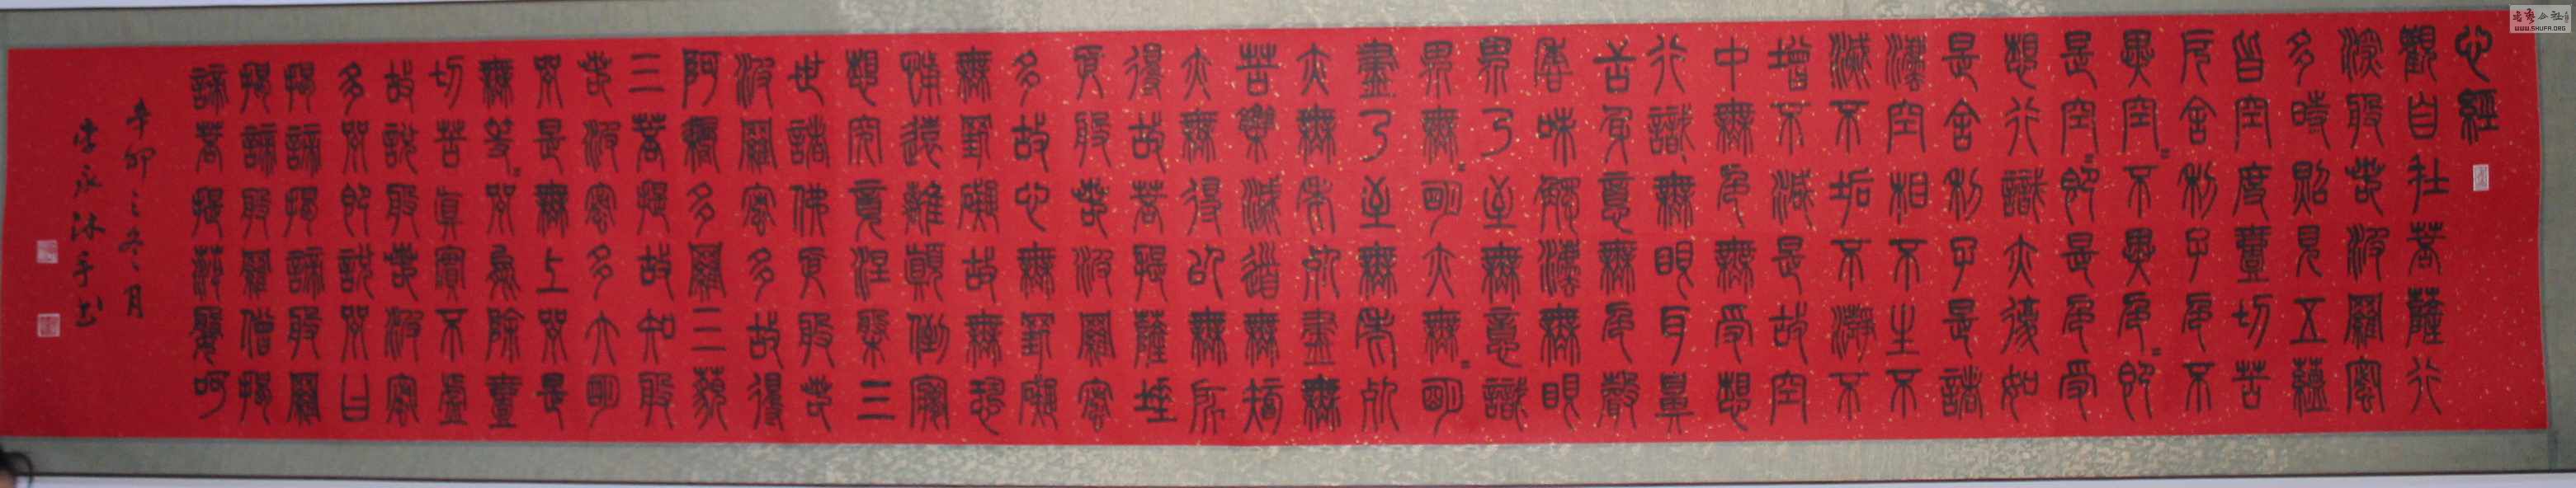 心經
觀自在菩薩行
深般若波羅蜜
多時照見五蘊
皆空度壹切苦
厄舍利子色不
異空〻不異色〻即
是空〻即是色受
想行識亦復如
是舍利子是諸
灋空相不生不
滅不垢不淨不
增不減是故空
中無色無受想
行識無眼耳鼻
舌身意無色聲
香味觸灋無眼
界乃至無意識
界無〻明亦無〻明
盡乃至無老死
亦無老死盡無
苦集滅道無智
亦無得以無所
得故菩提薩埵
依般若波羅蜜
多故心無罣礙
無罣礙故無恐
怖遠離顛倒夢
想究竟涅槃三
世諸佛依般若
波羅蜜多故得
阿耨多羅三藐
三菩提故知般
若波蜜多大明
咒是無上咒是
無等〻咒能除壹
切苦真實不虛
故說般若波蜜
多咒即說咒曰
揭諦揭諦般羅
揭諦般羅僧揭
諦菩提莎婆呵
辛卯之冬月
李永沐手書
WWW.SHUFA.ORG